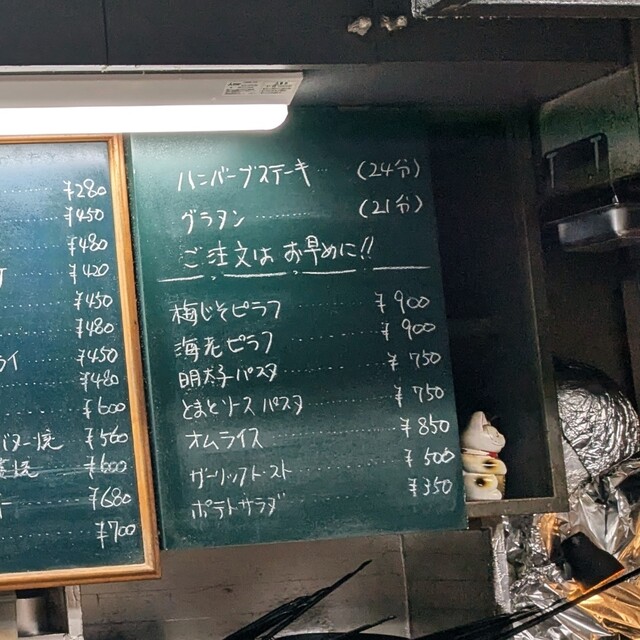 ¥280
¥450
¥480
¥420
¥450
¥480
ライ ¥450
¥480
¥600
バター焼 ¥560
¥600
¥680
¥700
ハンバーグステーキ (24分)
グラタン (21分)
ご注文は お早めに!!
梅じそピラフ ¥900
海老ピラフ ¥900
明太子パスタ ¥750
とまとソースパスタ ¥750
オムライス ¥850
ガーリックトースト ¥500
ポテトサラダ ¥350